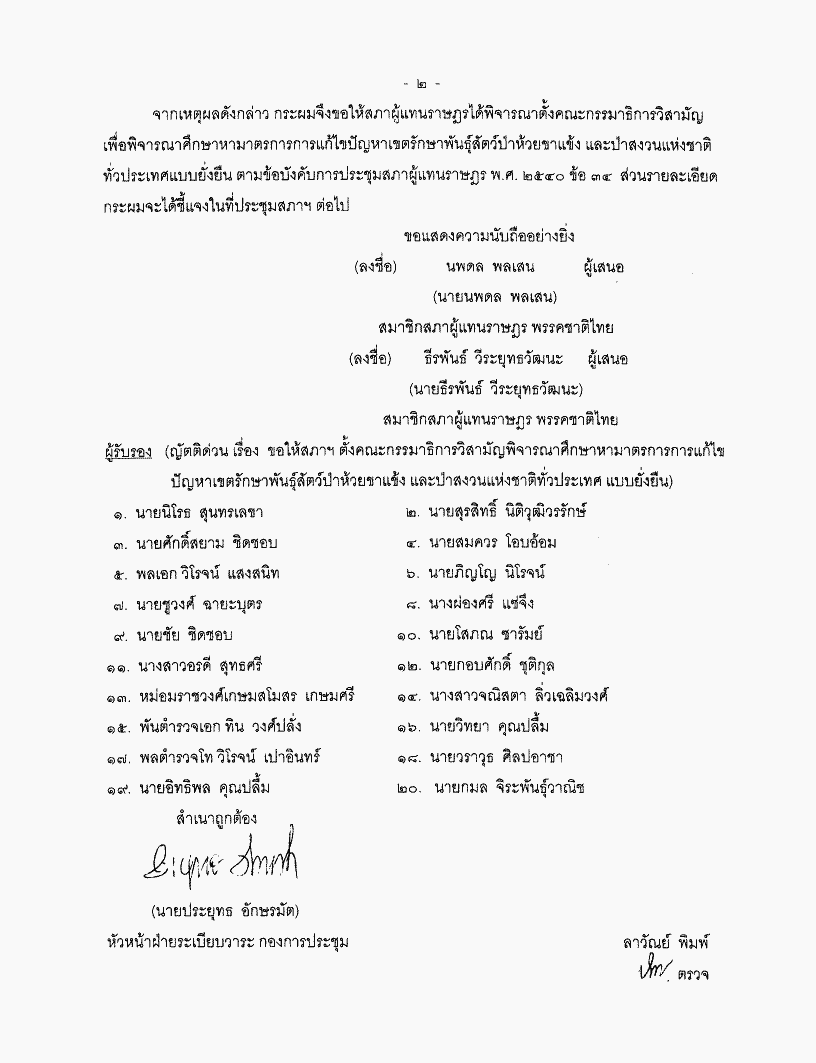 - ๒ -
จากเหตุผลดังกล่าว กระผมจึงขอให้สภาผู้แทนราษฎรได้พิจารณาตั้งคณะกรรมาธิการวิสามัญ
เพื่อพิจารณาศึกษาหามาตรการการแก้ไขปัญหาเขตรักษาพันธุ์สัตว์ป่าห้วยขาแข้ง และป่าสงวนแห่งชาติ
ทั่วประเทศแบบยั่งยืน ตามข้อบังคับการประชุมสภาผู้แทนราษฎร พ.ศ. ๒๕๔๐ ข้อ ๓๔ ส่วนรายละเอียด
กระผมจะได้ชี้แจงในที่ประชุมสภาฯ ต่อไป
ขอแสดงความนับถืออย่างยิ่ง
(ลงชื่อ) นพดล พลเสน ผู้เสนอ
(นายนพดล พลเสน)
สมาชิกสภาผู้แทนราษฎร พรรคชาติไทย
(ลงชื่อ) ธีรพันธ์ วีระยุทธวัฒนะ ผู้เสนอ
(นายธีรพันธ์ วีระยุทธวัฒนะ)
สมาชิกสภาผู้แทนราษฎร พรรคชาติไทย
ผู้รับรอง (ญัตติด่วน เรื่อง ขอให้สภาฯ ตั้งคณะกรรมาธิการวิสามัญพิจารณาศึกษาหามาตรการการแก้ไข
ปัญหาเขตรักษาพันธุ์สัตว์ป่าห้วยขาแข้ง และป่าสงวนแห่งชาติทั่วประเทศ แบบยั่งยืน)
๑. นายนิโรธ สุนทรเลขา ๒. นายสุรสิทธิ์ นิติวุฒิวรรักษ์
๓. นายศักดิ์สยาม ชิดชอบ ๔. นายสมควร โอบอ้อม
๕. พลเอก วิโรจน์ แสงสนิท ๖. นายภิญโญ นิโรจน์
๗. นายชูวงศ์ ฉายะบุตร ๘. นางผ่องศรี แซ่จึง
๙. นายชัย ชิดชอบ ๑๐. นายโสภณ ซารัมย์
๑๑. นางสาวอรดี สุทธศรี ๑๒. นายกอบศักดิ์ ชุติกุล
๑๓. หม่อมราชวงศ์เกษมสโมสร เกษมศรี ๑๔. นางสาวจณิสตา ลิ่วเฉลิมวงศ์
๑๕. พันตำรวจเอก ทิน วงศ์ปลั่ง ๑๖. นายวิทยา คุณปลื้ม
๑๗. พลตำรวจโท วิโรจน์ เปาอินทร์ ๑๘. นายวราวุธ ศิลปอาชา
๑๙. นายอิทธิพล คุณปลื้ม ๒๐. นายกมล จิระพันธุ์วาณิช
สำเนาถูกต้อง
(นายประยุทธ อักษรมัต)
หัวหน้าฝ่ายระเบียบวาระ กองการประชุม ลาวัณย์ พิมพ์
ตรวจ